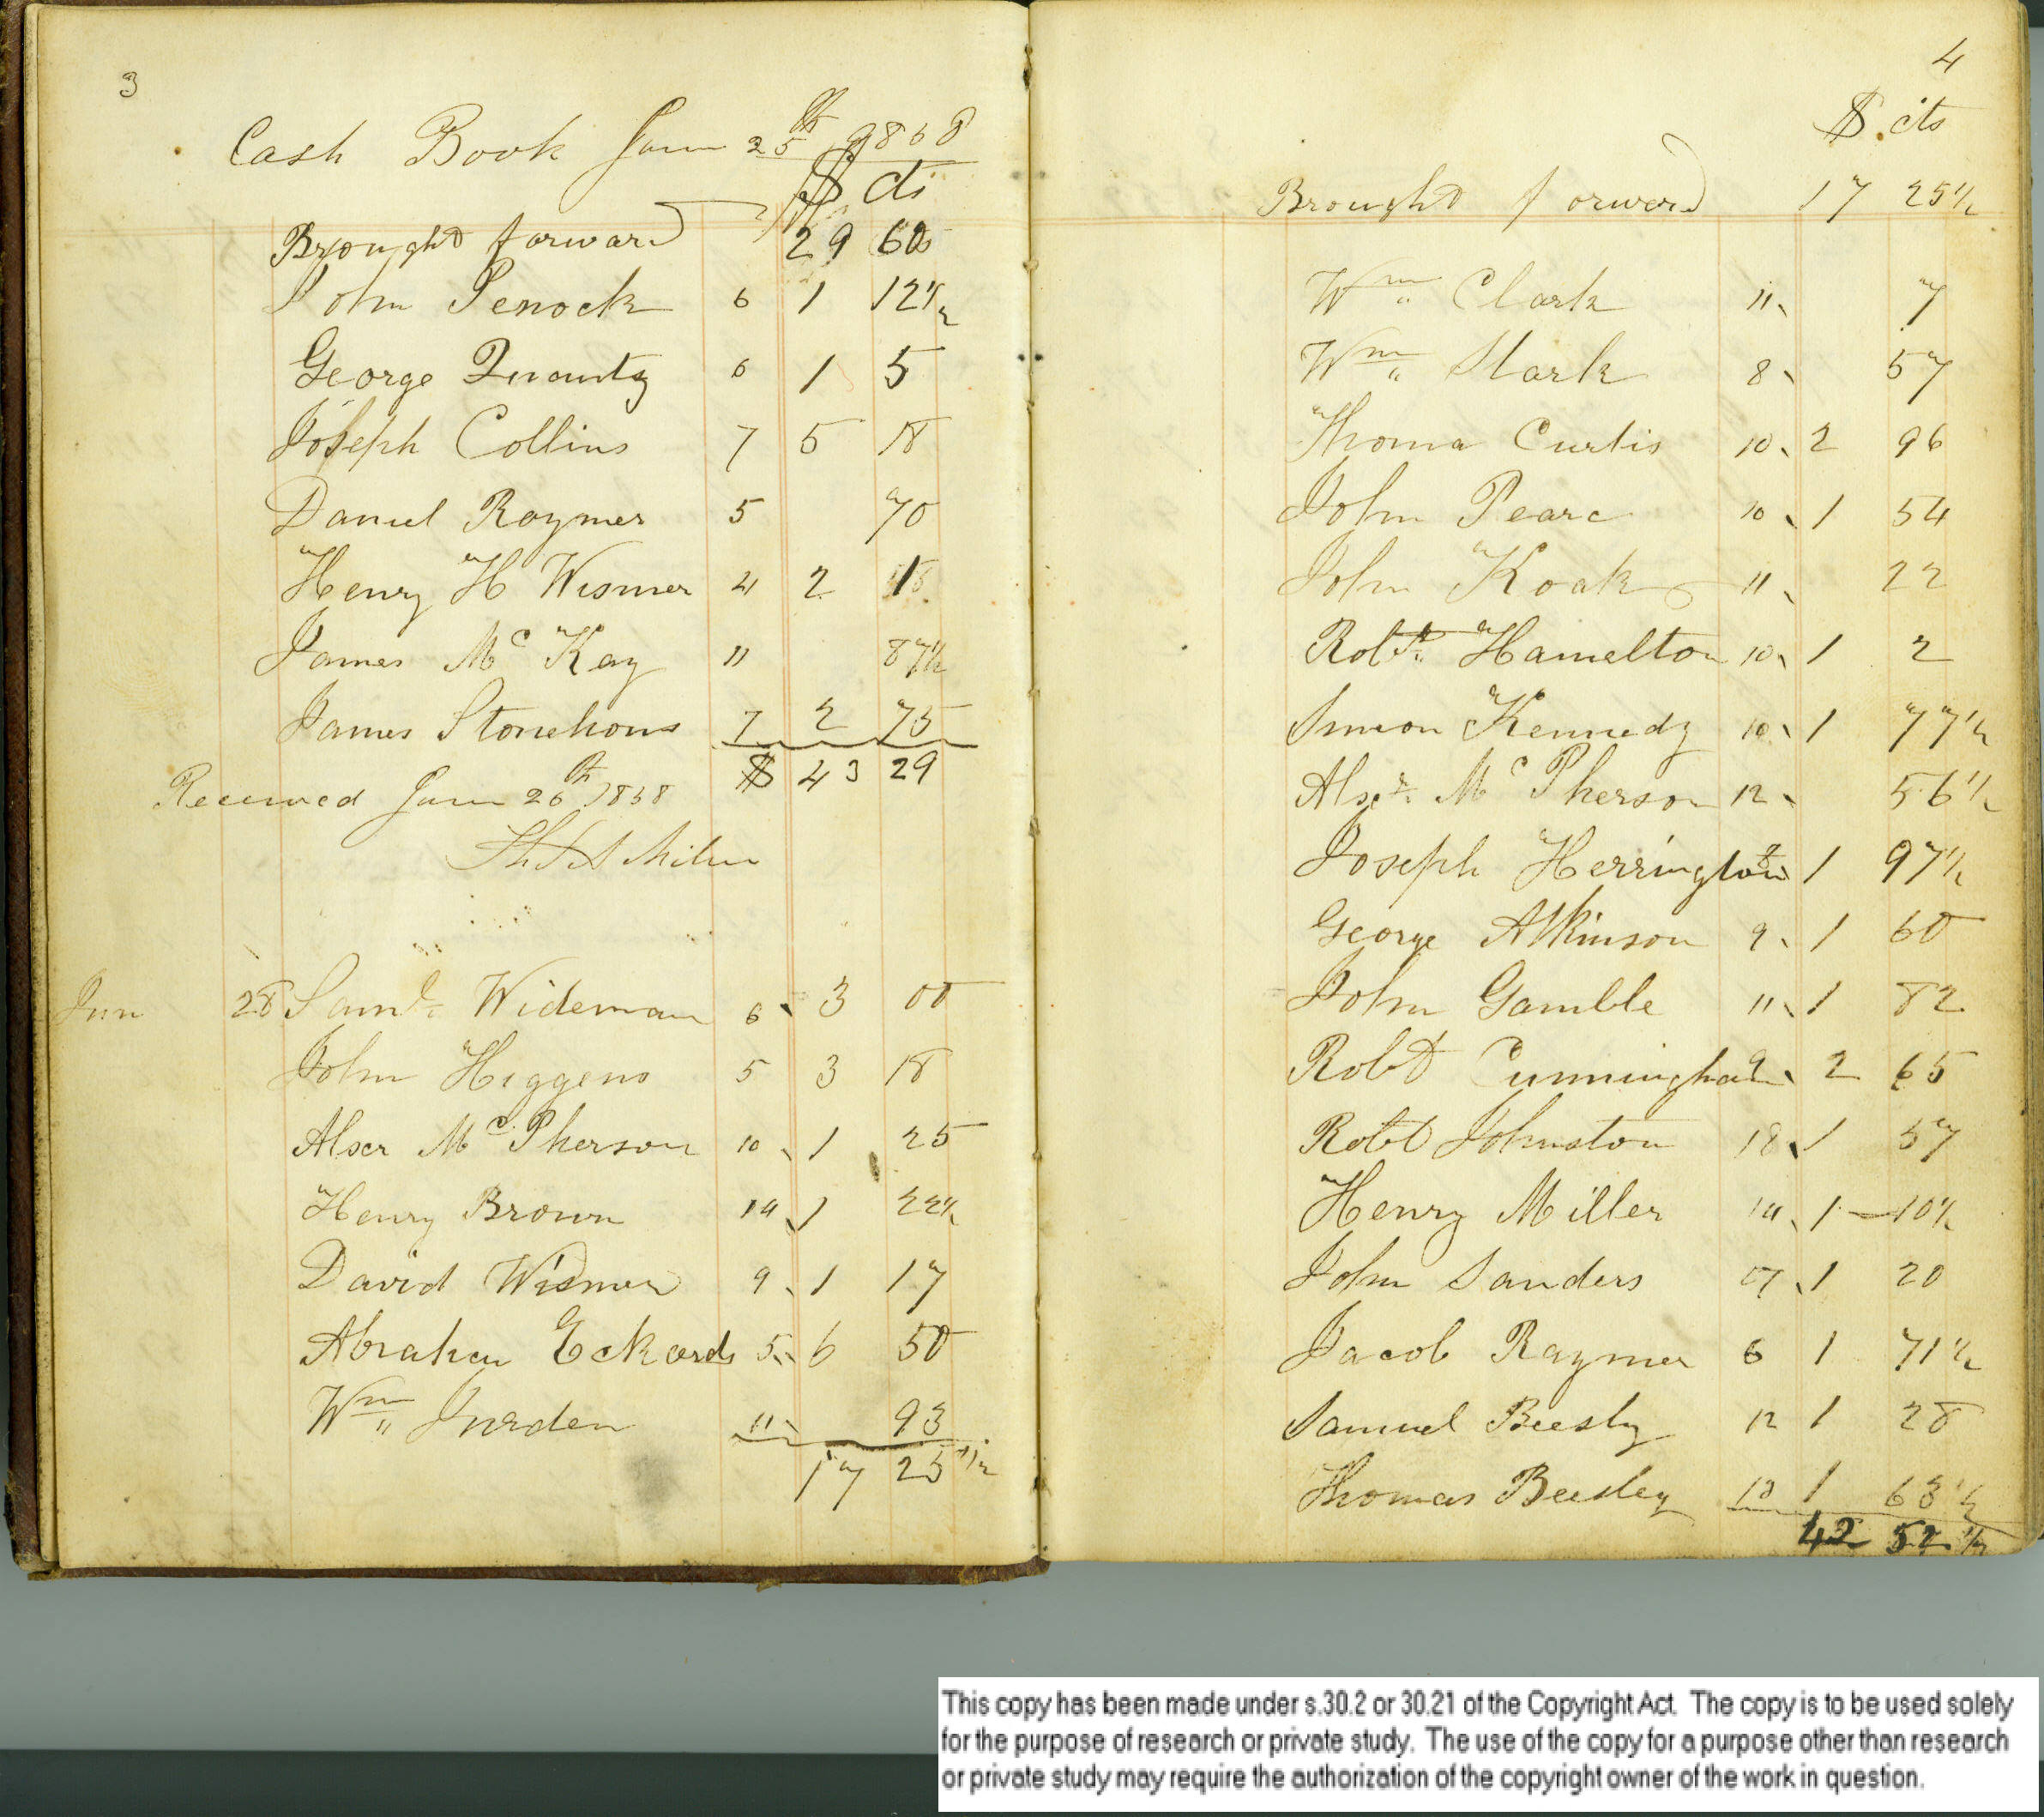 3
Cash Book June 25th 1858
$ cts
Brought forward 29 60
John Penock 6 1 12 1/2
George Quantz 6 1 5
Joseph Collins 7 5 18
Daniel Raymer 5 70
Henry H Wismer 4 2
James Mc Kay 11 87 1/2
James Stonehous 7 2 75
$ 43 29
Received June 26th 1858
Milne
Jun 28 Saml Wideman 6 3 00
John Higgens 5 3 18
Alxr Mc Pherson 10 1 25
Henry Brown 14 1 22 1/2
David Wismer 9 1 17
Abraham Eckards 5 6 50
Wm Jurden 11 93
17 25 1/2
4
$ cts
Brought forward 17 25 1/2
Wm Clark 11 7
Wm Stark 8 57
Thoma Curtis 10 2 96
John Pearc 10 1 54
John Koak 11 22
Robt Hamelton 10 1 2
Simeon Kennedy 10 1 77 1/2
Alxr Mc Pherson 12 56 1/2
Joseph Herrington 1 97 1/2
George Atkinson 9 1 60
John Gamble 11 1 82
Robt Cunningham 9 2 65
Robt Johnston 18 1 57
Henry Miller 14 1 10 1/2
John Sanders 17 1 20
Jacob Raymer 6 1 71 1/2
Samuel Beesly 12 1 28
Thomas Beesley 13 1 63 1/2
42 52 1/2
This copy has been made under s.30.2 or 30.21 of the Copyright Act. The copy is to be used solely
for the purpose of research or private study. The use of the copy for a purpose other than research
or private study may require the authorization of the copyright owner of the work in question.